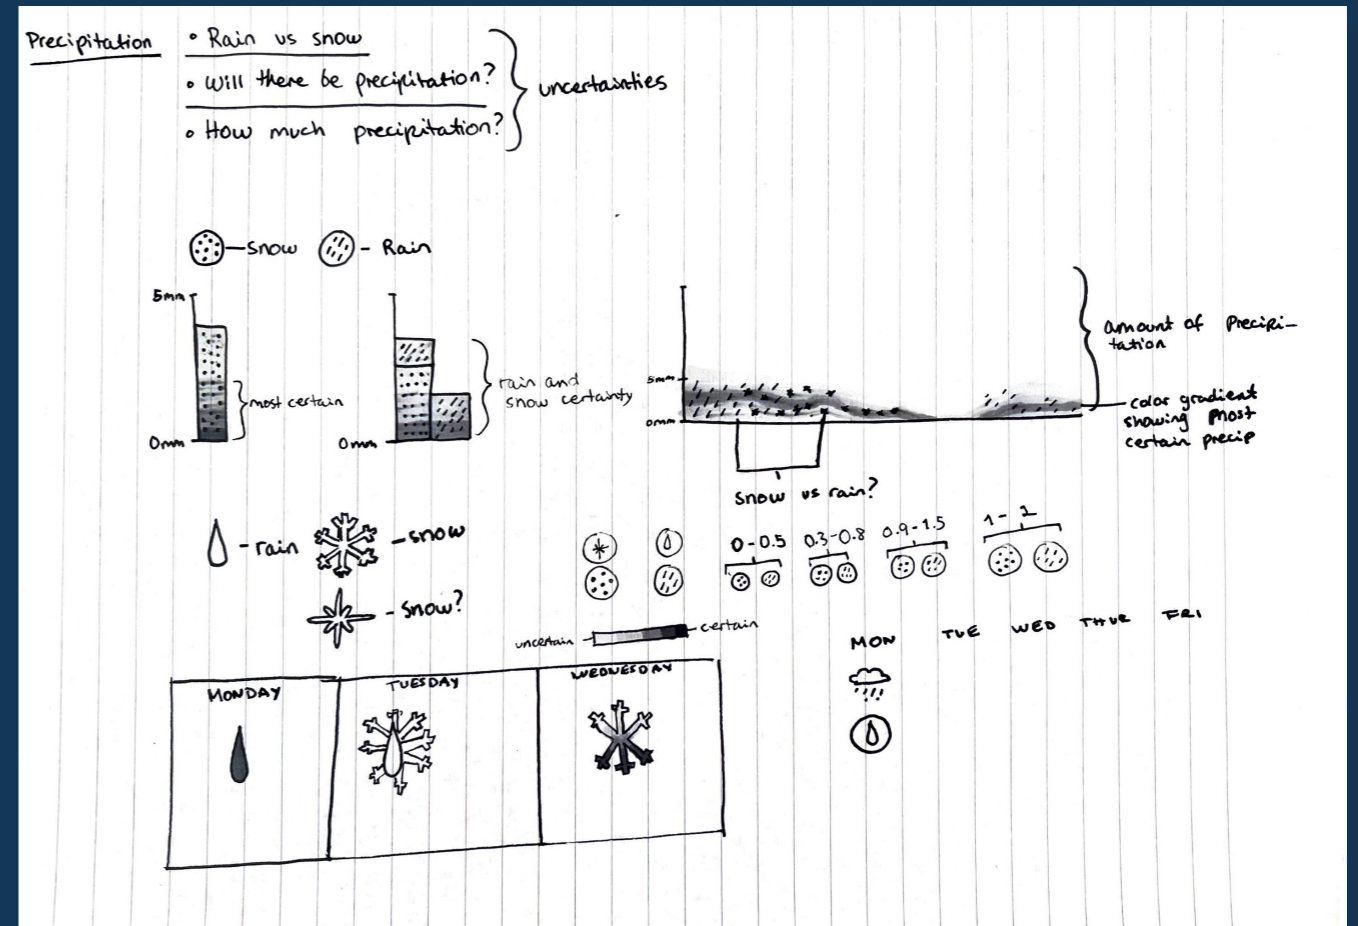 Precipitation
• Rain vs snow
• Will there be precipitation?
• How much precipitation?
uncertainties
snow
Rain
5mm
0mm
most certain
0mm
rain and
snow certainty
5mm
0mm
amount of precipi-
tation
color gradient
showing most
certain precip
snow vs rain?
rain
snow
snow?
0-0.5
0.3-0.8
0.9-1.5
1-2
uncertain
certain
MON TUE WED THUR FRI
MONDAY
TUESDAY
WEDNESDAY